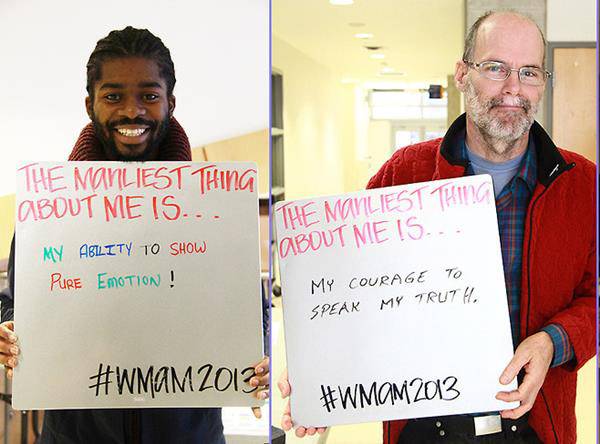 THE MANLIEST THING
ABOUT ME IS...
MY ABILITY TO SHOW
PURE EMOTION!
#WMAM2013
THE MANLIEST THING
ABOUT ME IS...
MY COURAGE TO
SPEAK MY TRUTH.
#WMAM2013